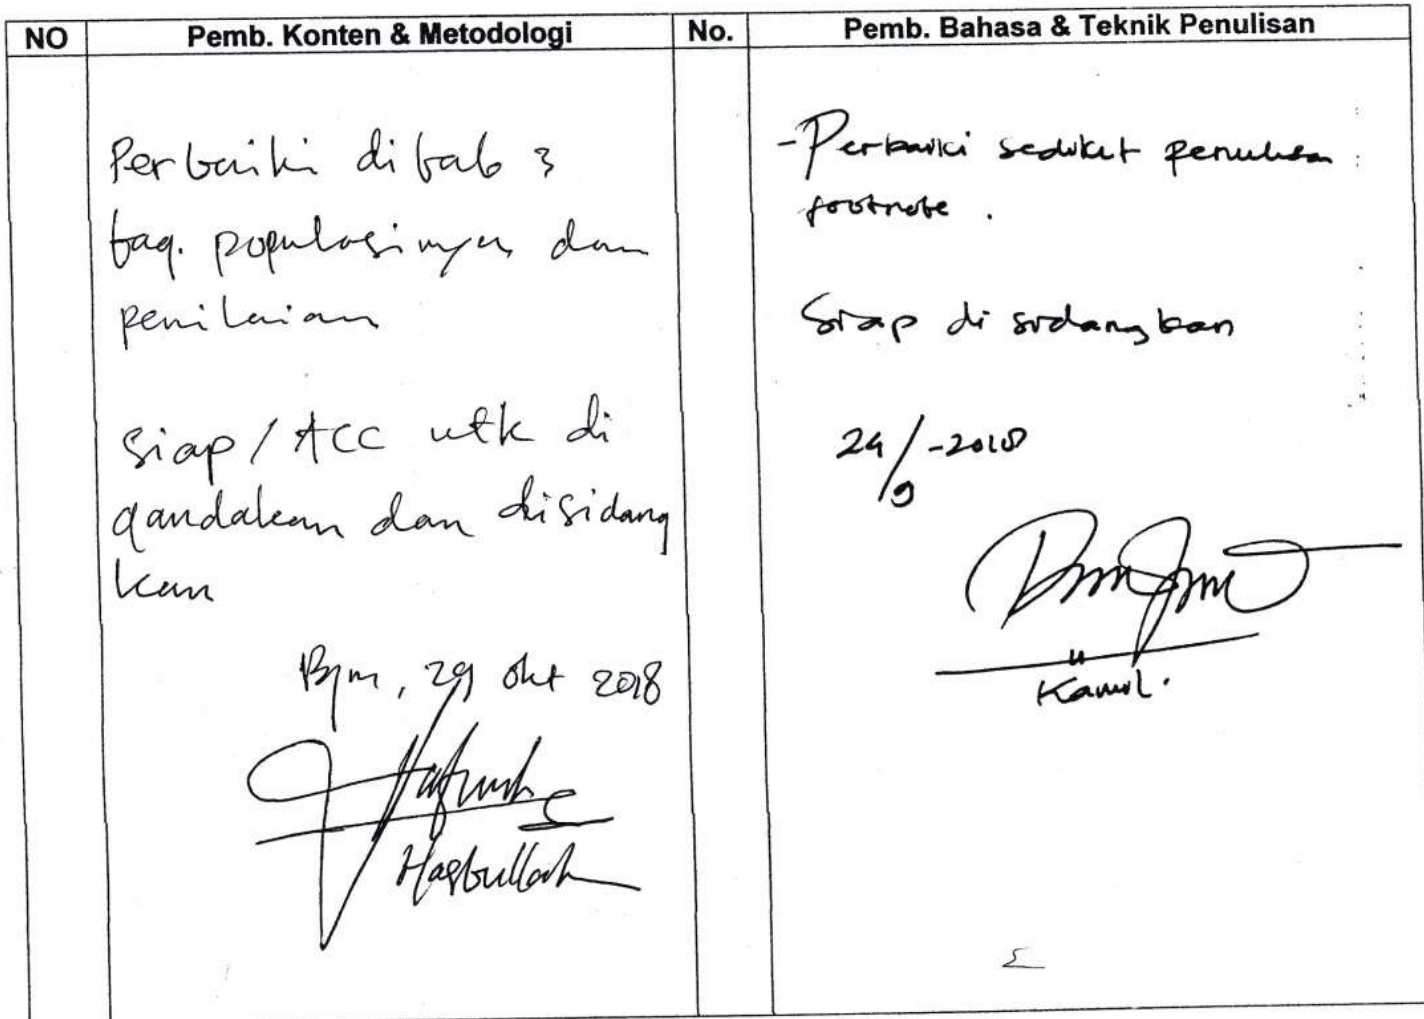 NO Pemb. Konten & Metodologi No. Pemb. Bahasa & Teknik Penulisan
Perbaiki di bab 3
bag. populasinya dan
penilaian
siap / ACC utk di
gandakan dan disidang
kan
Bjm, 29 okt 2018
Hasbullah
- Perbaiki sedikit penulisan
footnote.
Siap di sidangkan
24/9-2018
Kamil.